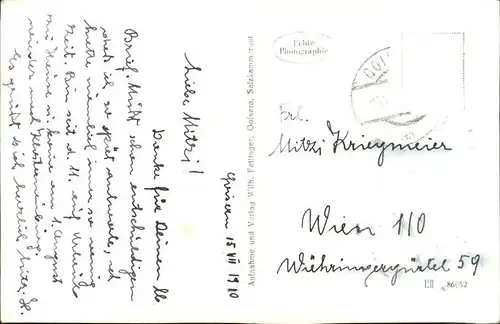 Goisern 15 VII 1910
Liebe Mitzi!
Danke für Deinen lb
Brief. Mußt schon entschuldigen
daß ich so spät antworte, ich
hatte nämlich immer so wenig
Zeit. Bin seit d. 11. auf Urlaub
zu Hause
1. August
wieder nach Klosterneuburg
Es grüßt Dich herzlich Mitzi H.
Echte
Photographie
GOI
Aufnahme und Verlag Wilh. Fettinger, Goisern, Salzkammergut
Frl.
Mitzi Kriegmeier
Wien 110
Währingergürtel 59
86052